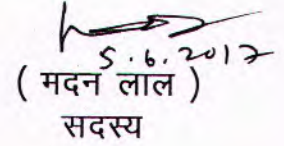 5.6.2017
( मदन लाल )
सदस्य